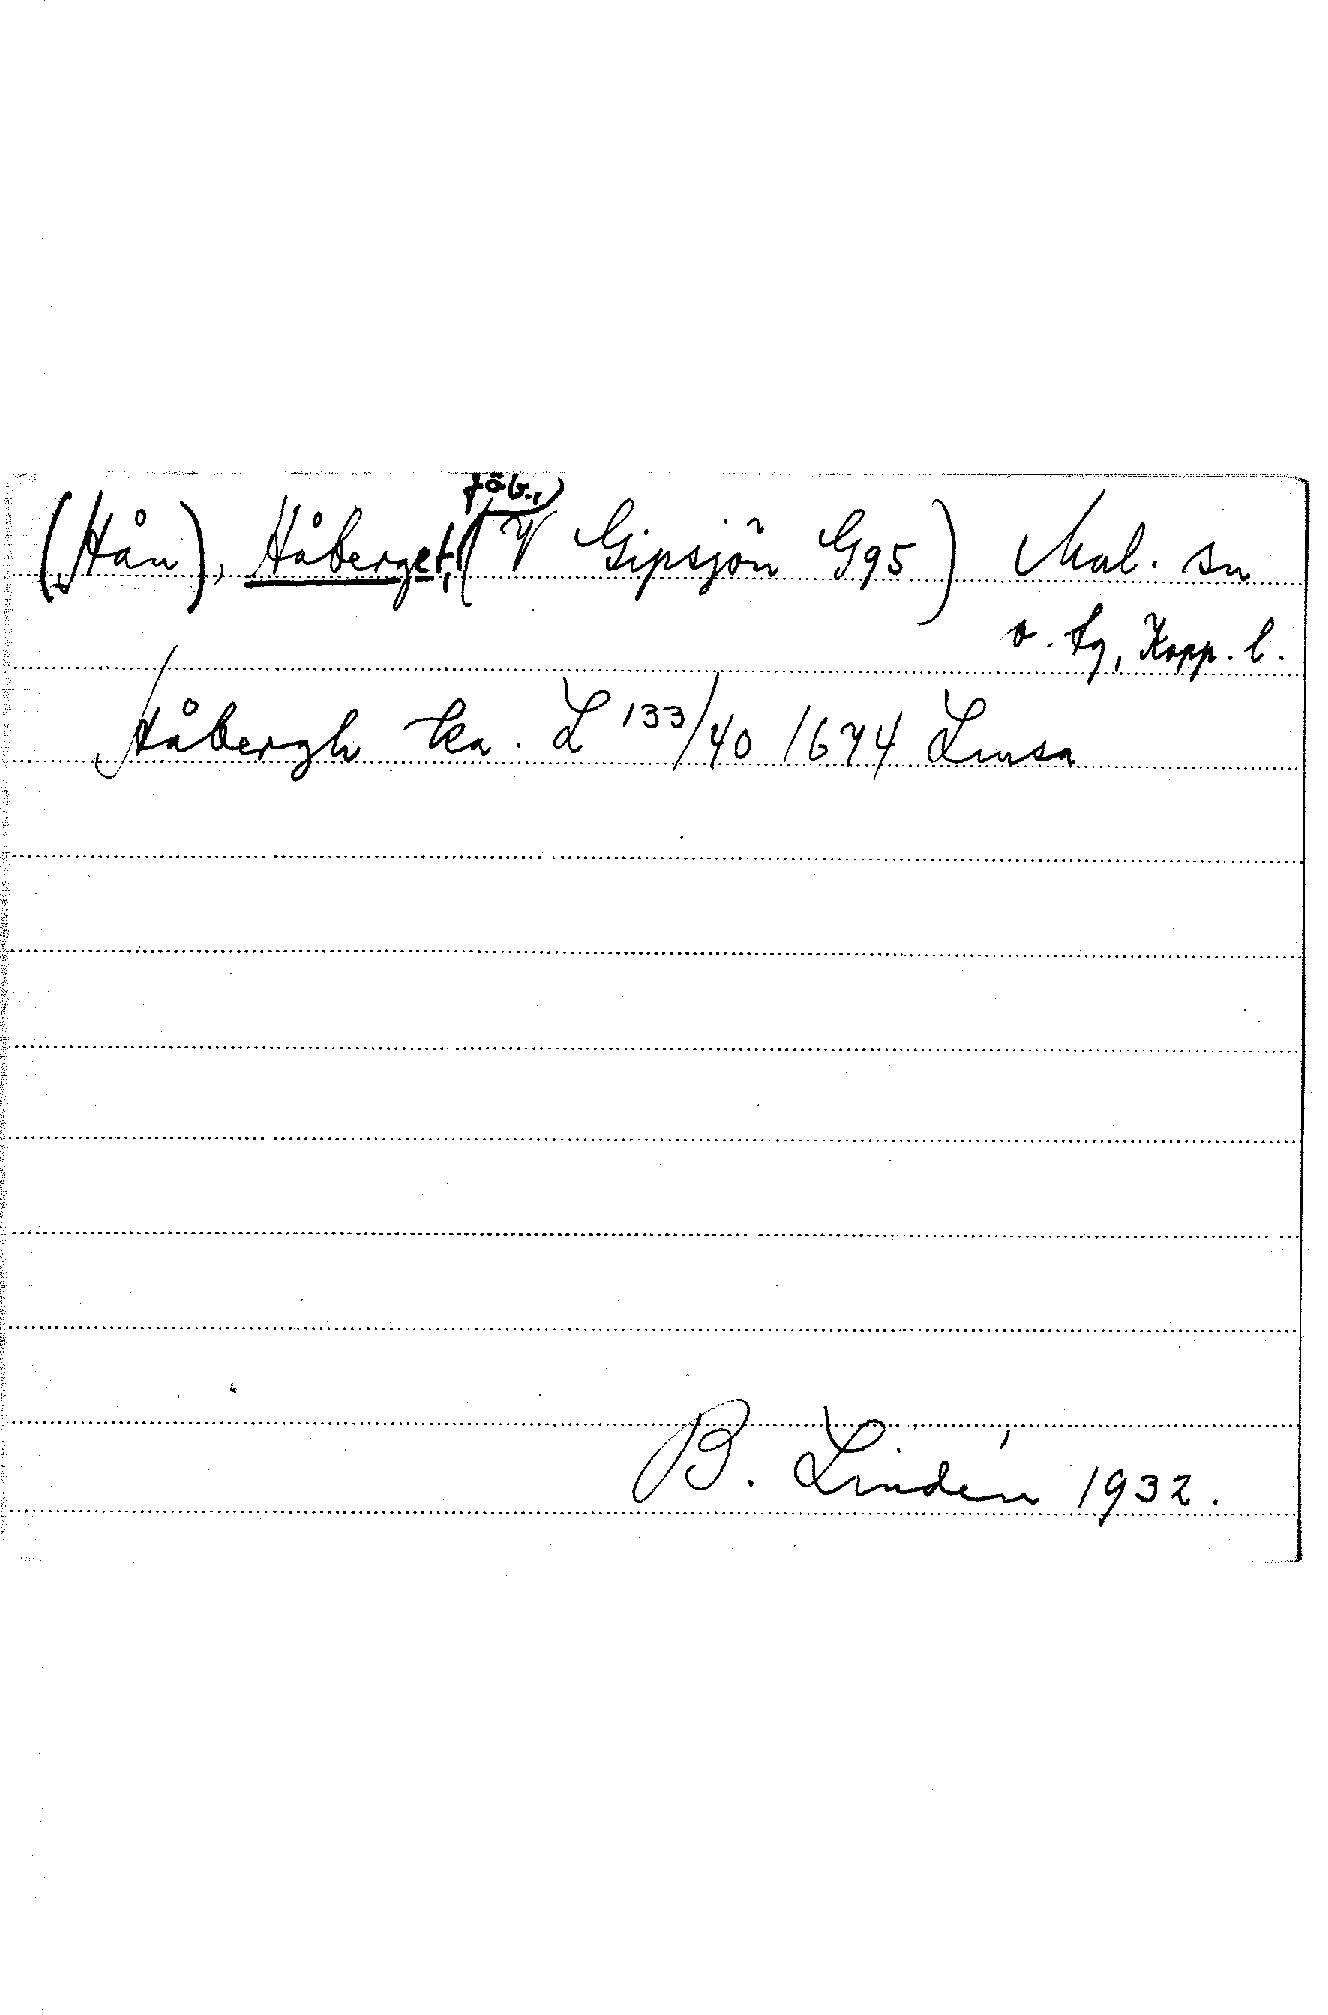 (Hån), Håberget, fäb., (V Gipsjön G95) Mal. sn
o. tg, Kopp. l.
Håbergh ka. L 133/40 1674 Lmsa
B. Lindén 1932.